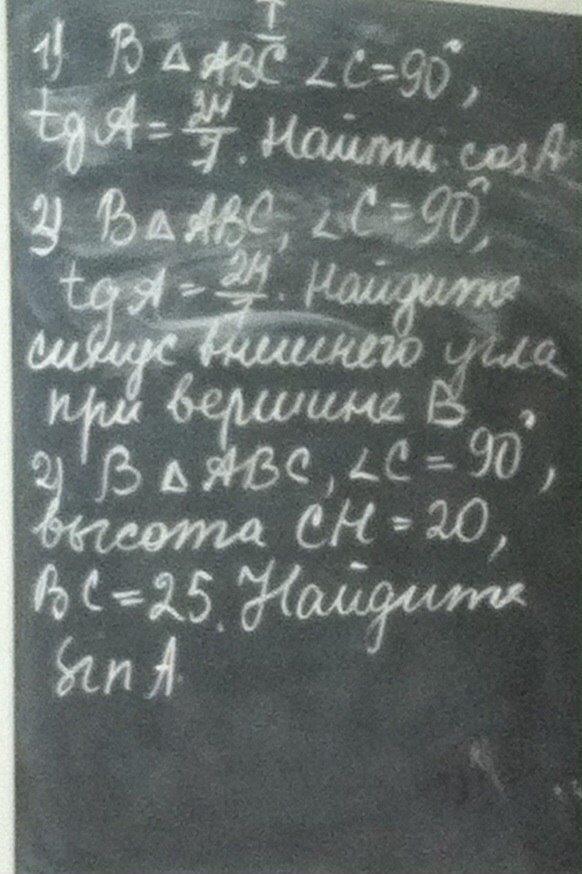 1) В △ ABC ∠C=90°,
tg A = 24/7. Найти cos A
2) В △ ABC, ∠C=90°,
tg A = 24/7. Найдите
синус внешнего угла
при вершине B
2) В △ ABC, ∠C = 90°,
высота CH = 20,
BC = 25. Найдите
sin A